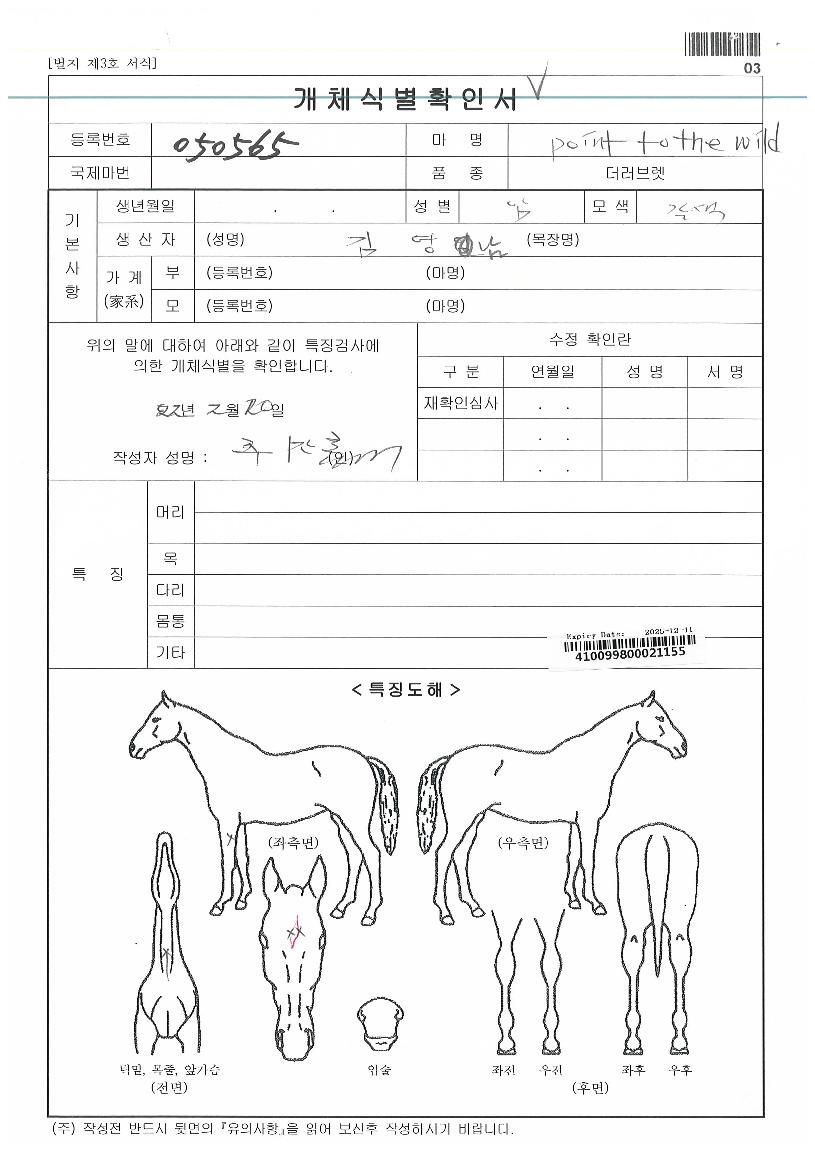 [별지 제3호 서식]
03
개체식별확인서
등록번호 050565 마 명 point to the wild
국제마번 품 종 더러브렛
기본사항
생년월일 . . 성 별 암 모 색 갈색
생 산 자 (성명) 김 영 남 (목장명)
가 계 (家系) 부 (등록번호) (마명)
모 (등록번호) (마명)
위의 말에 대하여 아래와 같이 특징검사에
의한 개체식별을 확인합니다.
22년 2월 20일
작성자 성명 : (인)
수정 확인란
구 분 연월일 성 명 서 명
재확인심사 . .
. .
. .
특 징
머리
목
다리
몸통
기타
Expiry Date: 2025-12-11
410099800021155
< 특징도해 >
(좌측면) (우측면)
턱밑, 목줄, 앞가슴 입술 좌전 우전 좌후 우후
(전면) (후면)
(주) 작성전 반드시 뒷면의 『유의사항』을 읽어 보신후 작성하시기 바랍니다.